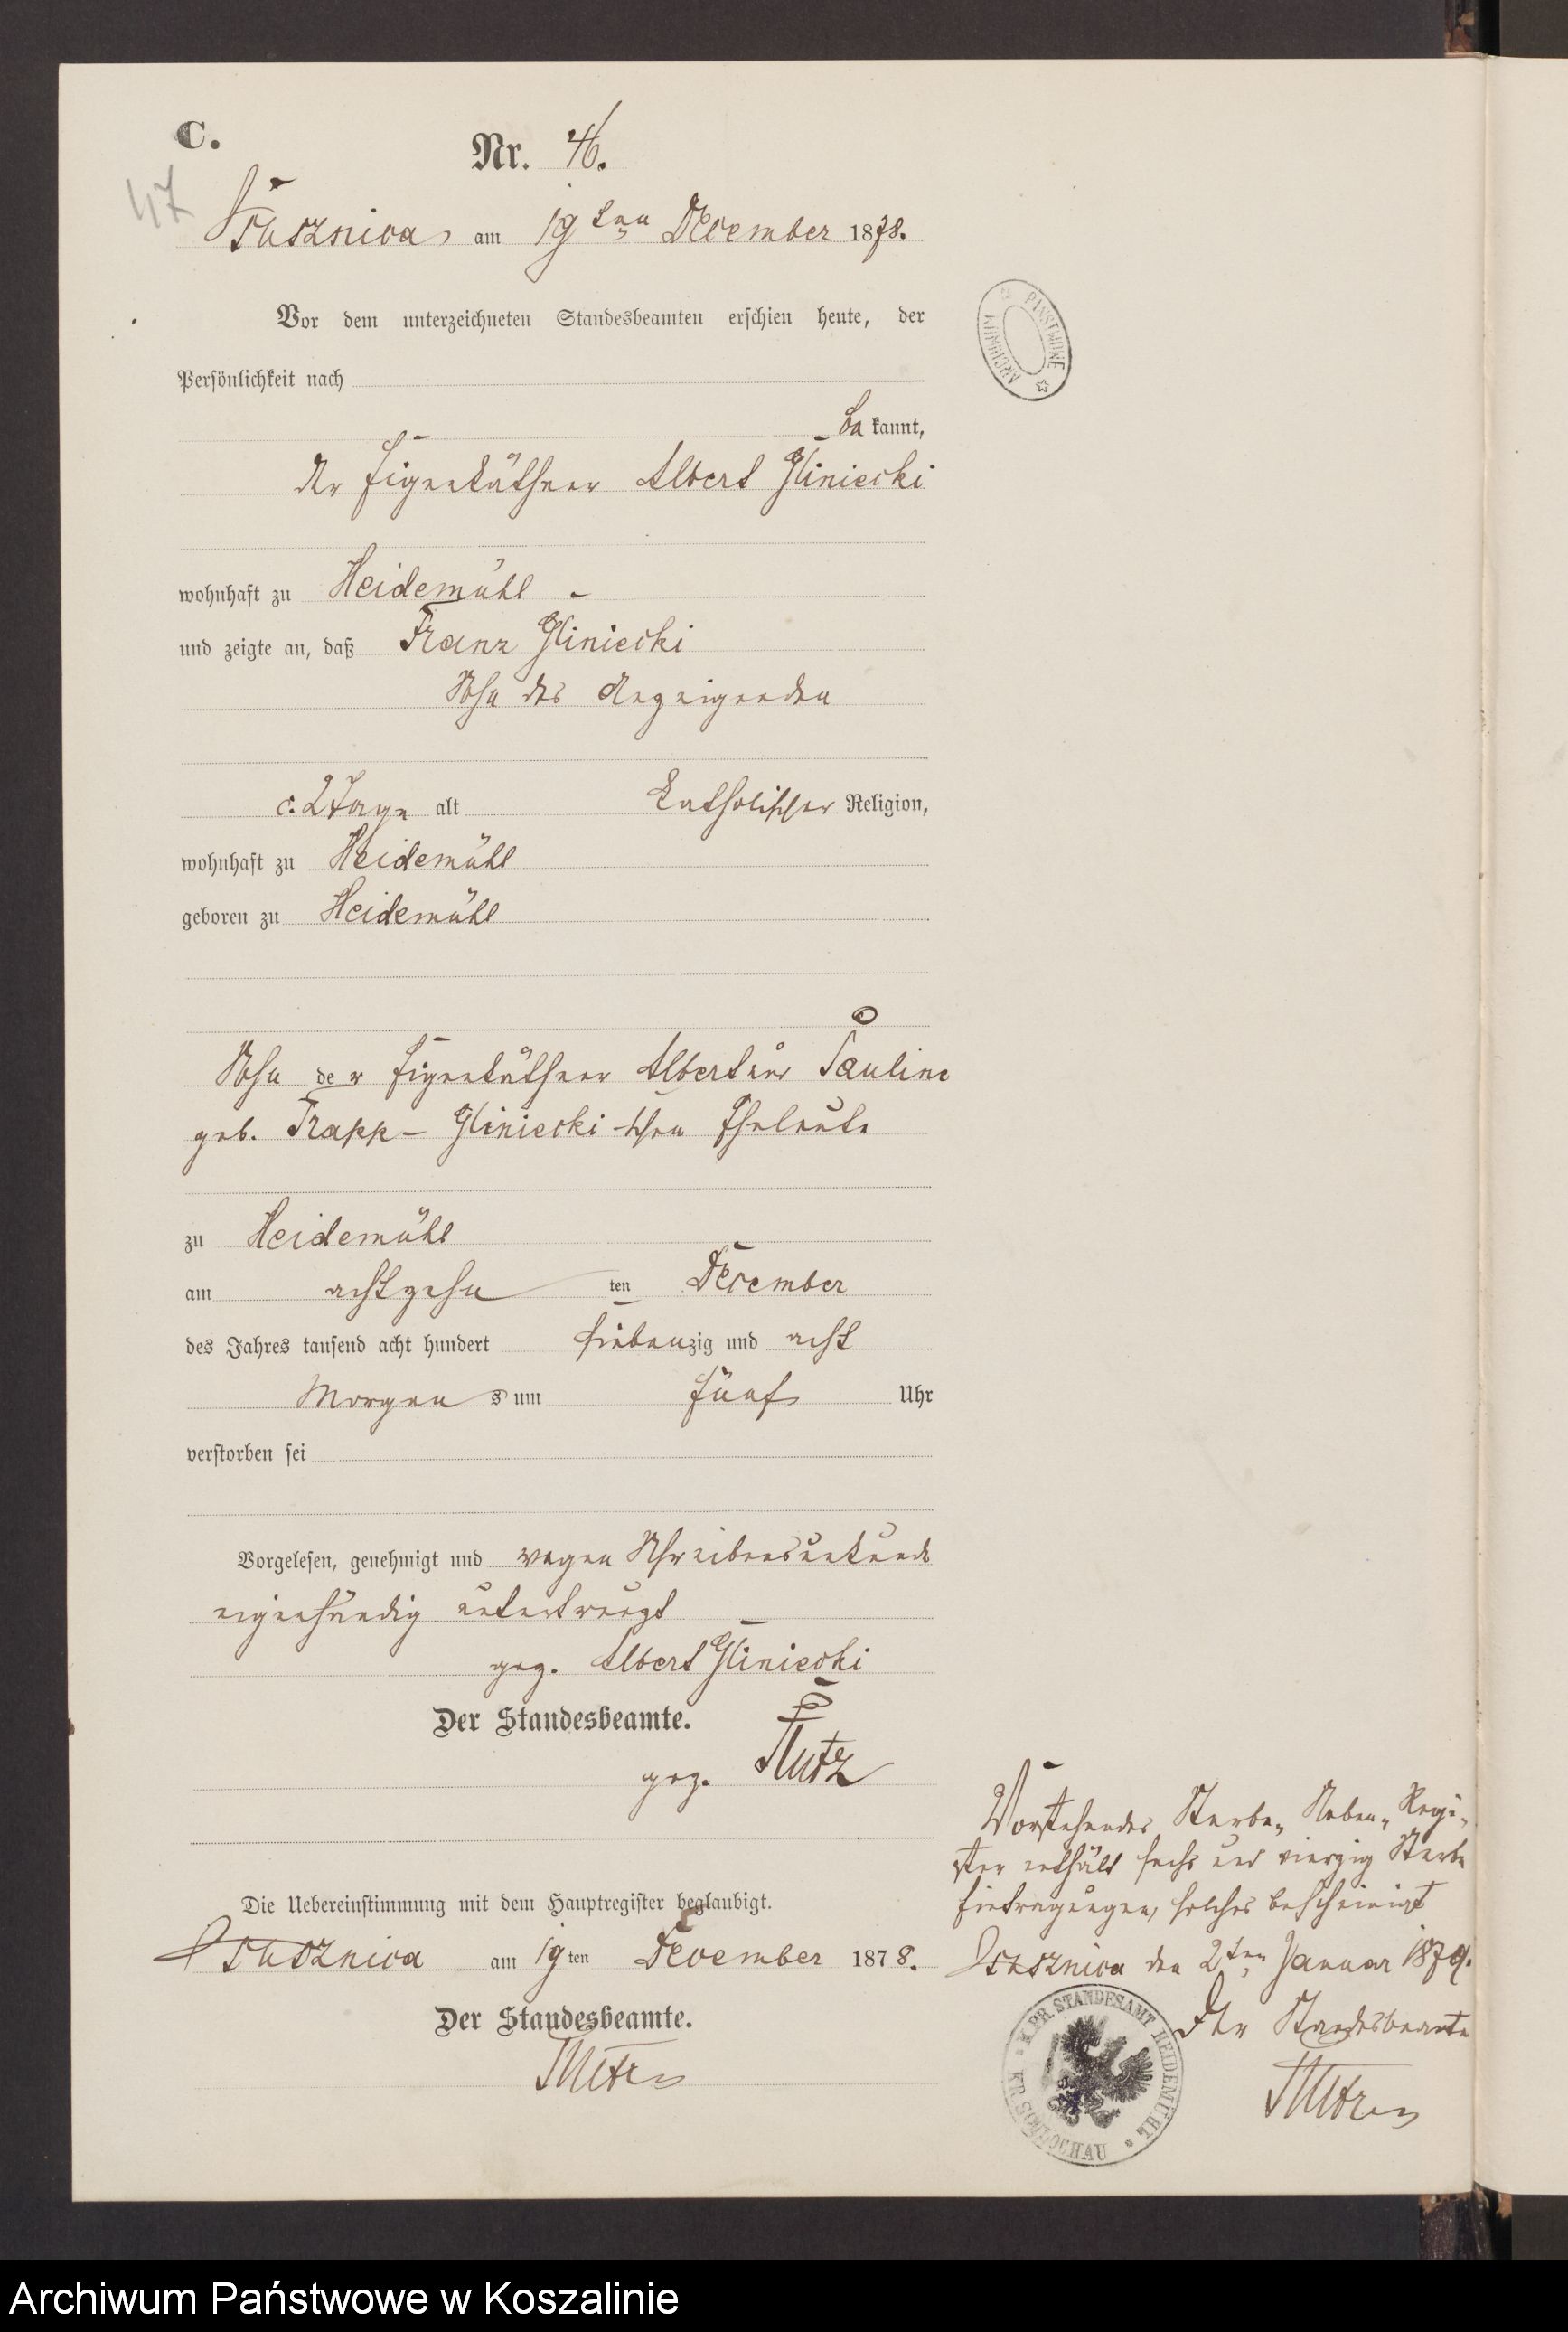 C.
Nr. 46.
47
Ostusznica am 19ten December 1878.
Vor dem unterzeichneten Standesbeamten erschien heute, der
Persönlichkeit nach
bekannt,
der Eigenkäthner Albert Gliniecki
wohnhaft zu Heidemühl
und zeigte an, daß Franz Gliniecki
Sohn des Anzeigenden
c. 2 Tage alt katholischer Religion,
wohnhaft zu Heidemühl
geboren zu Heidemühl
Sohn der Eigenkäthner Albert und Pauline
geb. Trapp - Gliniecki-schen Eheleute
zu Heidemühl
am achtzehnten December
des Jahres tausend acht hundert siebenzig und acht
Morgens um fünf Uhr
verstorben sei
Vorgelesen, genehmigt und wegen Schreibensunkunde
eigenhändig unterkreuzt
gez. Albert Gliniecki
Der Standesbeamte.
gez.
Die Uebereinstimmung mit dem Hauptregister beglaubigt.
am 19ten December 1878.
Der Standesbeamte.
Vorstehendes Sterbe-Neben-Regi-
ster enthält sechs und vierzig Sterbe
Eintragungen, solches bescheinigt
den 2ten Januar 1879.
Der Standesbeamte
K. PR. STANDESAMT HEIDEMÜHL * KR. SCHLOCHAU *
ARCHIWUM PAŃSTWOWE
Archiwum Państwowe w Koszalinie